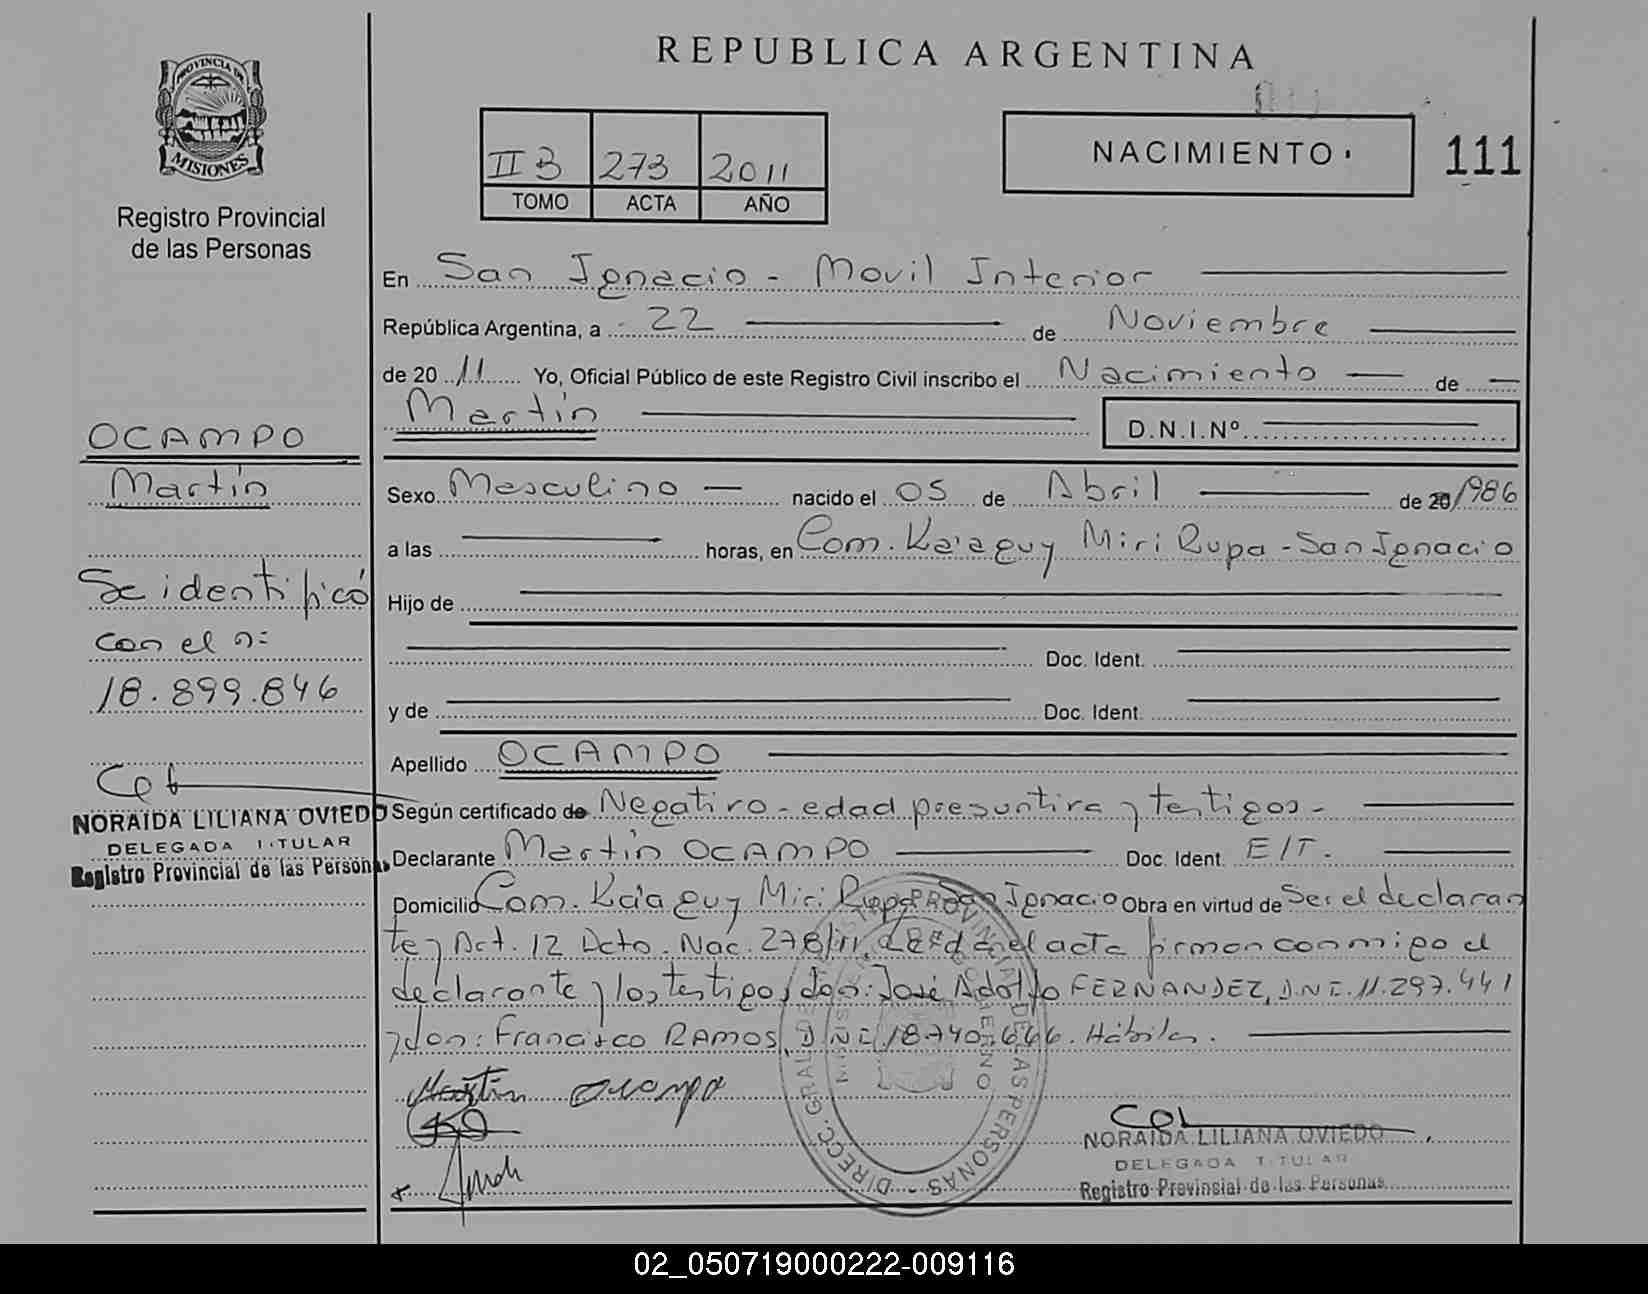 REPUBLICA ARGENTINA
PROVINCIA DE
MISIONES
Registro Provincial
de las Personas
II B 273 2011
TOMO ACTA AÑO
NACIMIENTO.
111
En San Ignacio - Movil Interior
República Argentina, a 22 de Noviembre
de 2011 Yo, Oficial Público de este Registro Civil inscribo el Nacimiento de
Martín
D.N.I.Nº
OCAMPO
Martín
Se identificó
con el n:
18.899.846
NORAIDA LILIANA OVIEDO
DELEGADA TITULAR
Registro Provincial de las Personas
Sexo Masculino nacido el 05 de Abril de 20 1986
a las horas, en Com. Ka'aguy Miri Rupa - San Ignacio
Hijo de
Doc. Ident.
y de Doc. Ident.
Apellido OCAMPO
Según certificado de Negativo - edad presuntiva y testigos -
Declarante Martín OCAMPO Doc. Ident. E/T.
Domicilio Com. Ka'aguy Miri Rupa San Ignacio Obra en virtud de Ser el declaran
te y Art. 12 Dcto. Nac. 278/11, el acta firman conmigo el
declarante y los testigos don: José Adolfo FERNANDEZ, D.N.I. 11.297.441
y don: Francisco RAMOS, D.N.I. 18.740.666. Hábiles.
Martín Ocampo
DIRECC. GRAL. DE LAS PERSONAS
NORAIDA LILIANA OVIEDO
DELEGADA TITULAR
Registro Provincial de las Personas
02_050719000222-009116